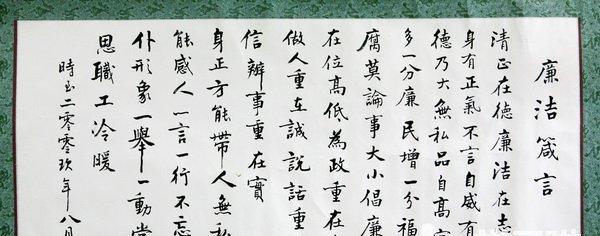 廉洁箴言
清正在德廉洁在志
身有正氣不言自威有
德乃大無私品自高
多一分廉民增一分福
腐莫論事大小倡廉
在位高低為政重在
做人重在誠説話重
信辦事重在實
身正方能帶人無私
能感人一言一行不忘
仆形象一舉一動常
思職工冷暖
時在二零零玖年八月